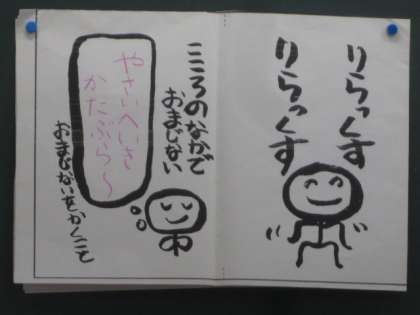 りらっくす
りらっくす
こころのなかで
おまじない
やさいへいき
かたぶら〜
おまじないをかくこと